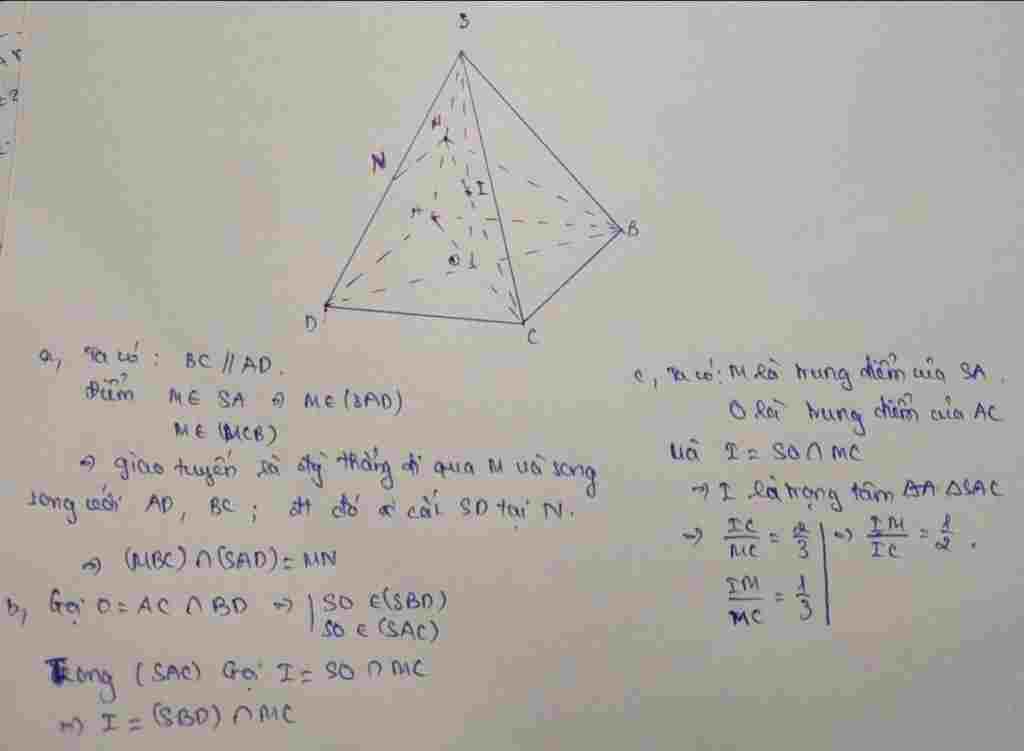 S
M
N
I
A
B
O
1
D
C
a, Ta có: BC // AD.
Điểm M ∈ SA => M ∈ (SAD)
M ∈ (MCB)
=> giao tuyến là đg thẳng đi qua M và song
song với AD, BC; đt đó cắt SD tại N.
=> (MBC) ∩ (SAD) = MN
b, Gọi O = AC ∩ BD => | SO ∈ (SBD)
| SO ∈ (SAC)
Trong (SAC) Gọi I = SO ∩ MC
=> I = (SBD) ∩ MC
c, Ta có: M là trung điểm của SA.
O là trung điểm của AC
và I = SO ∩ MC
=> I là trọng tâm ΔSAC
=> IC/MC = 2/3 | => IM/IC = 1/2.
IM/MC = 1/3